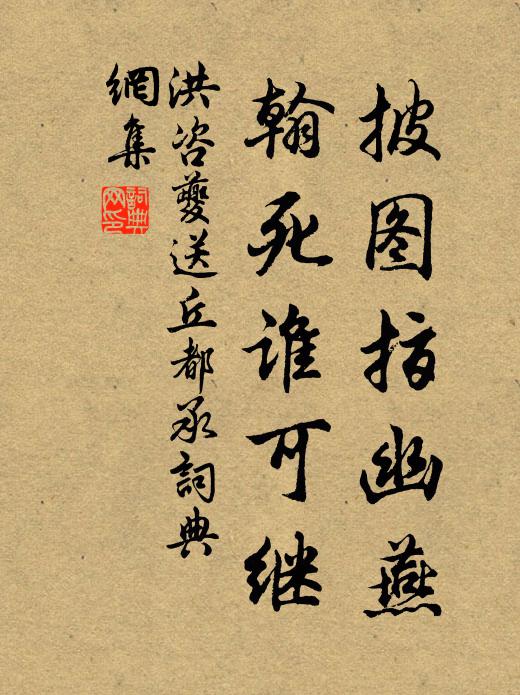 披图指幽燕
翰死谁可继
洪咨夔送丘都承詞典
網集
詞典
网印